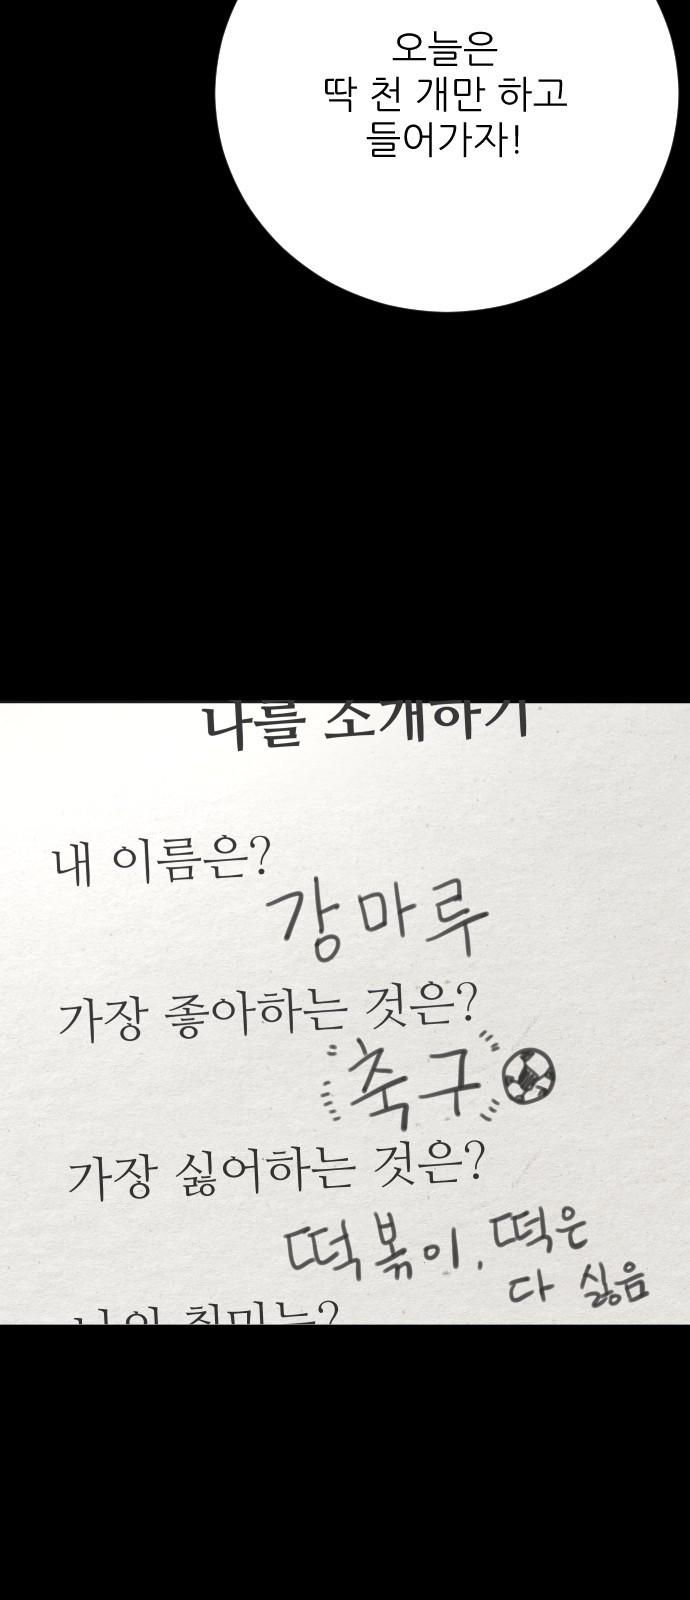 오늘은
딱 천 개만 하고
들어가자!
나를 소개하기
내 이름은?
강마루
가장 좋아하는 것은?
축구
가장 싫어하는 것은?
떡볶이, 떡은
다 싫음
나의 취미는?